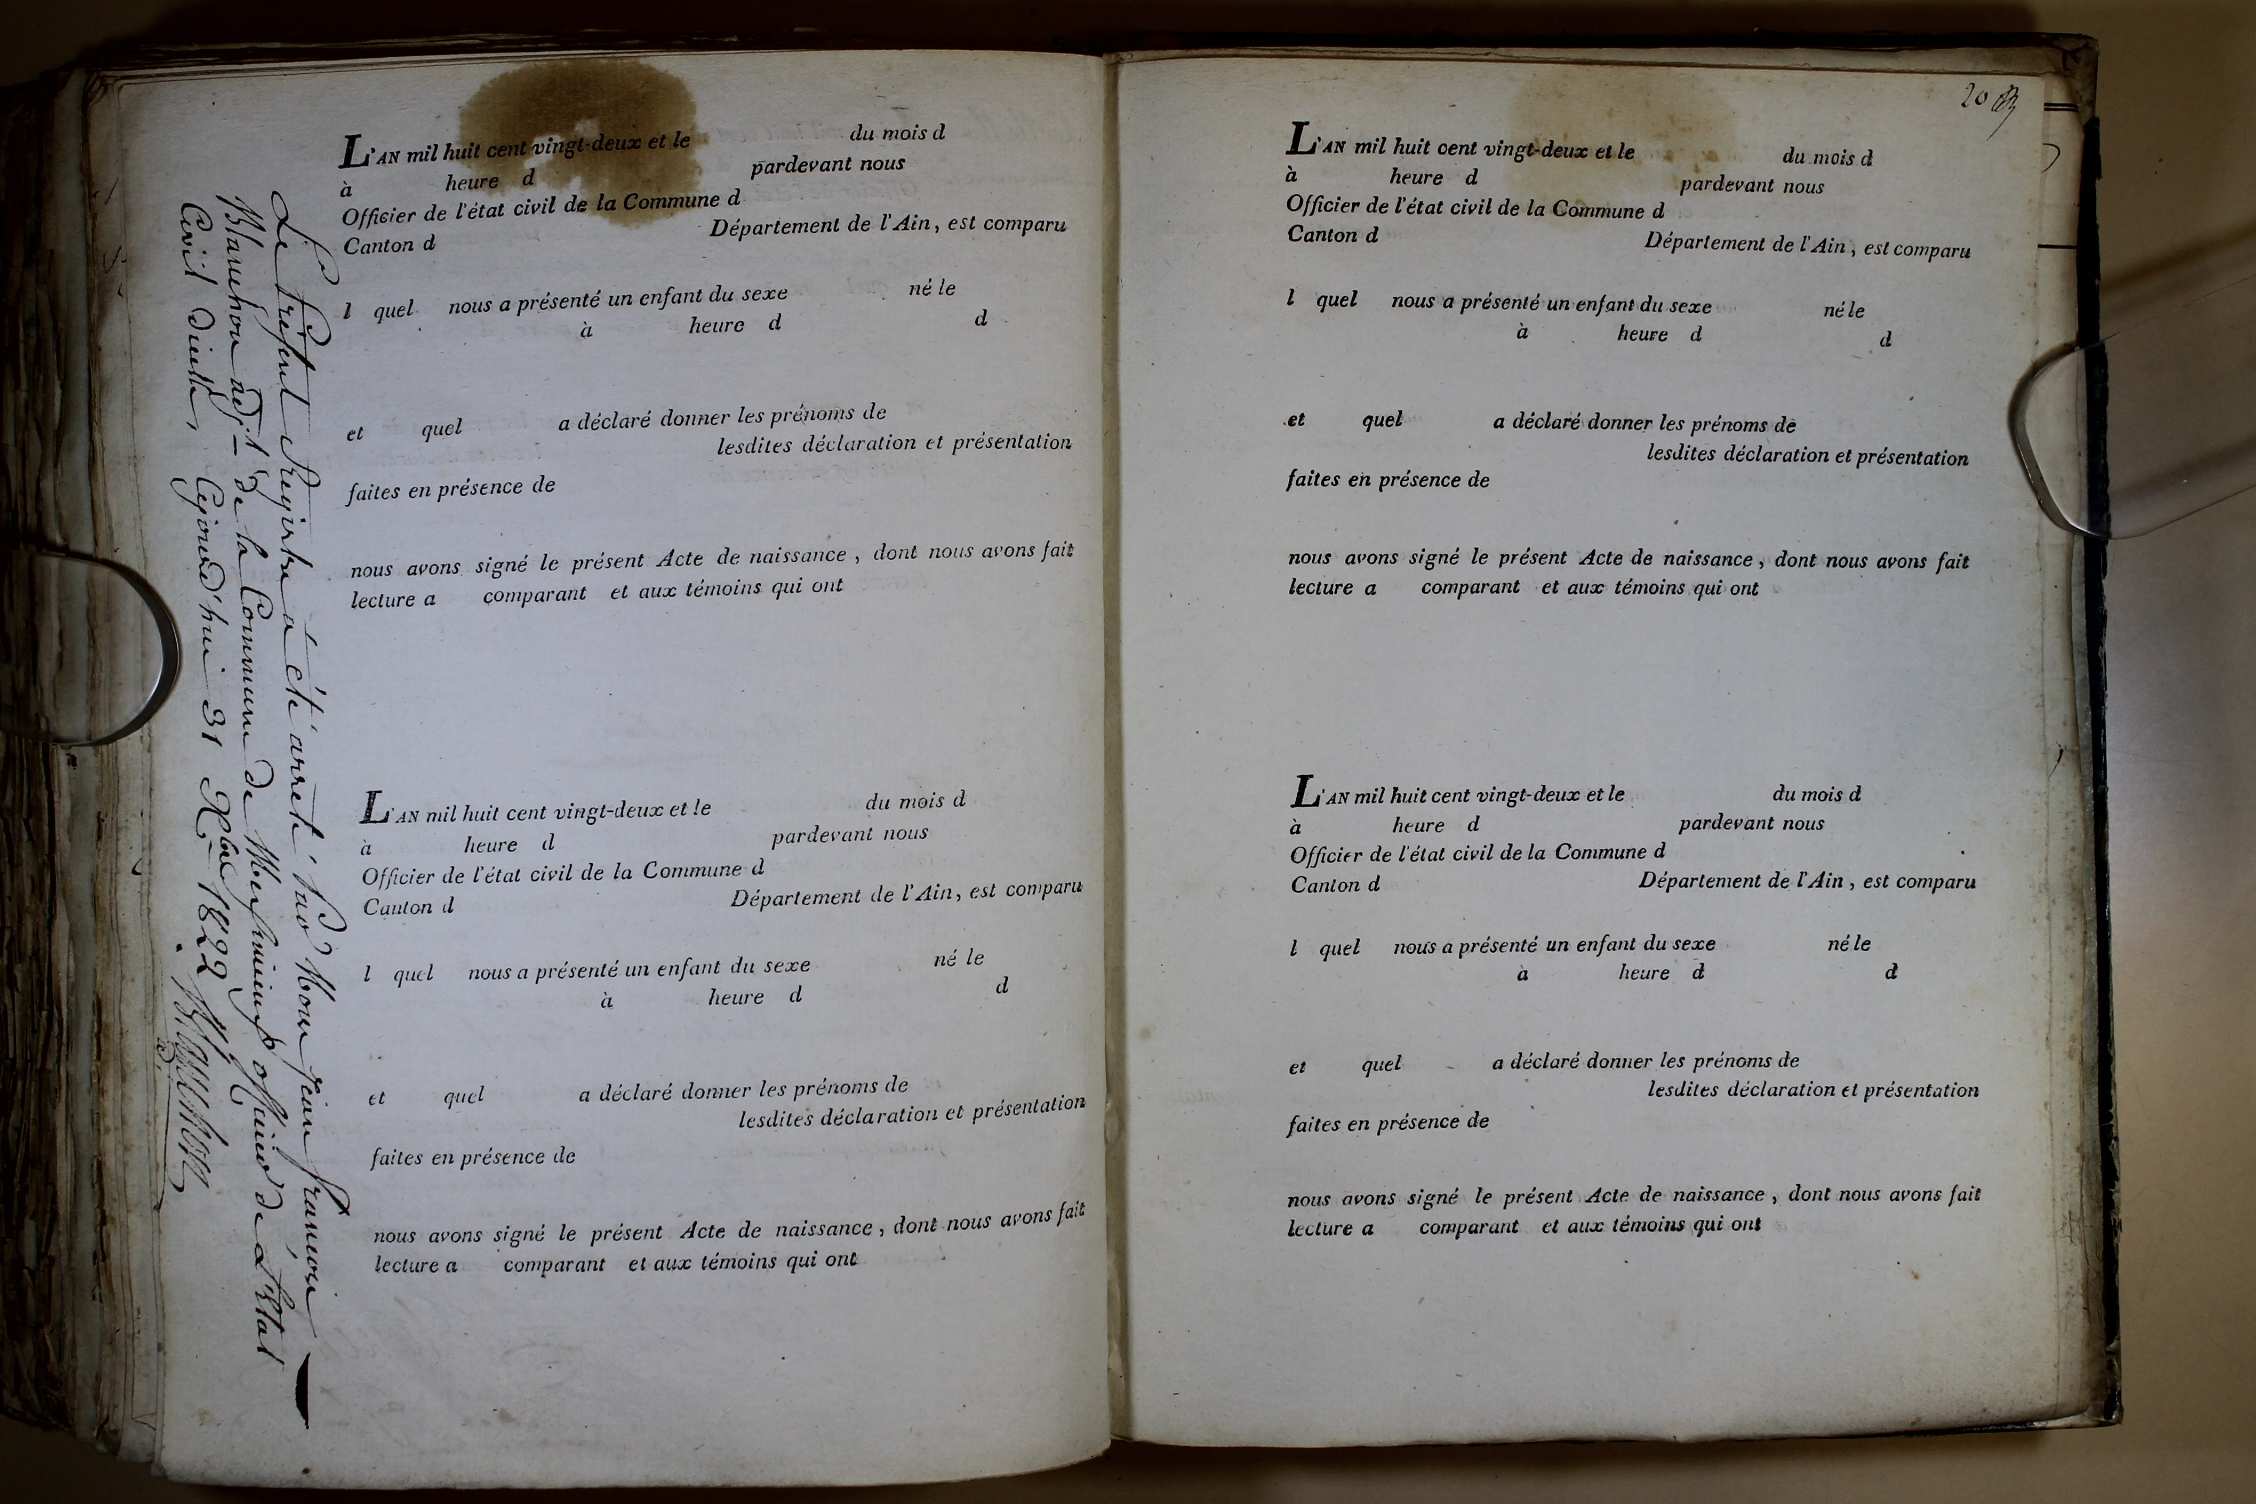 Le présent Registre a été arreté par Nous jean françois
Blanchon adj.t de la Commune de Messimieux officier de l'état
Civil dicelle, Cejourd'hui 31 Xbre 1822 Blanchon
adj
L'AN mil huit cent vingt-deux et le du mois d
à heure d pardevant nous
Officier de l'état civil de la Commune d
Canton d Département de l'Ain, est comparu
l quel nous a présenté un enfant du sexe né le
à heure d d
et quel a déclaré donner les prénoms de
lesdites déclaration et présentation
faites en présence de
nous avons signé le présent Acte de naissance, dont nous avons fait
lecture a comparant et aux témoins qui ont
L'AN mil huit cent vingt-deux et le du mois d
à heure d pardevant nous
Officier de l'état civil de la Commune d
Canton d Département de l'Ain, est comparu
l quel nous a présenté un enfant du sexe né le
à heure d d
et quel a déclaré donner les prénoms de
lesdites déclaration et présentation
faites en présence de
nous avons signé le présent Acte de naissance, dont nous avons fait
lecture a comparant et aux témoins qui ont
20
L'AN mil huit cent vingt-deux et le du mois d
à heure d pardevant nous
Officier de l'état civil de la Commune d
Canton d Département de l'Ain, est comparu
l quel nous a présenté un enfant du sexe né le
à heure d d
et quel a déclaré donner les prénoms de
lesdites déclaration et présentation
faites en présence de
nous avons signé le présent Acte de naissance, dont nous avons fait
lecture a comparant et aux témoins qui ont
L'AN mil huit cent vingt-deux et le du mois d
à heure d pardevant nous
Officier de l'état civil de la Commune d
Canton d Département de l'Ain, est comparu
l quel nous a présenté un enfant du sexe né le
à heure d d
et quel a déclaré donner les prénoms de
lesdites déclaration et présentation
faites en présence de
nous avons signé le présent Acte de naissance, dont nous avons fait
lecture a comparant et aux témoins qui ont